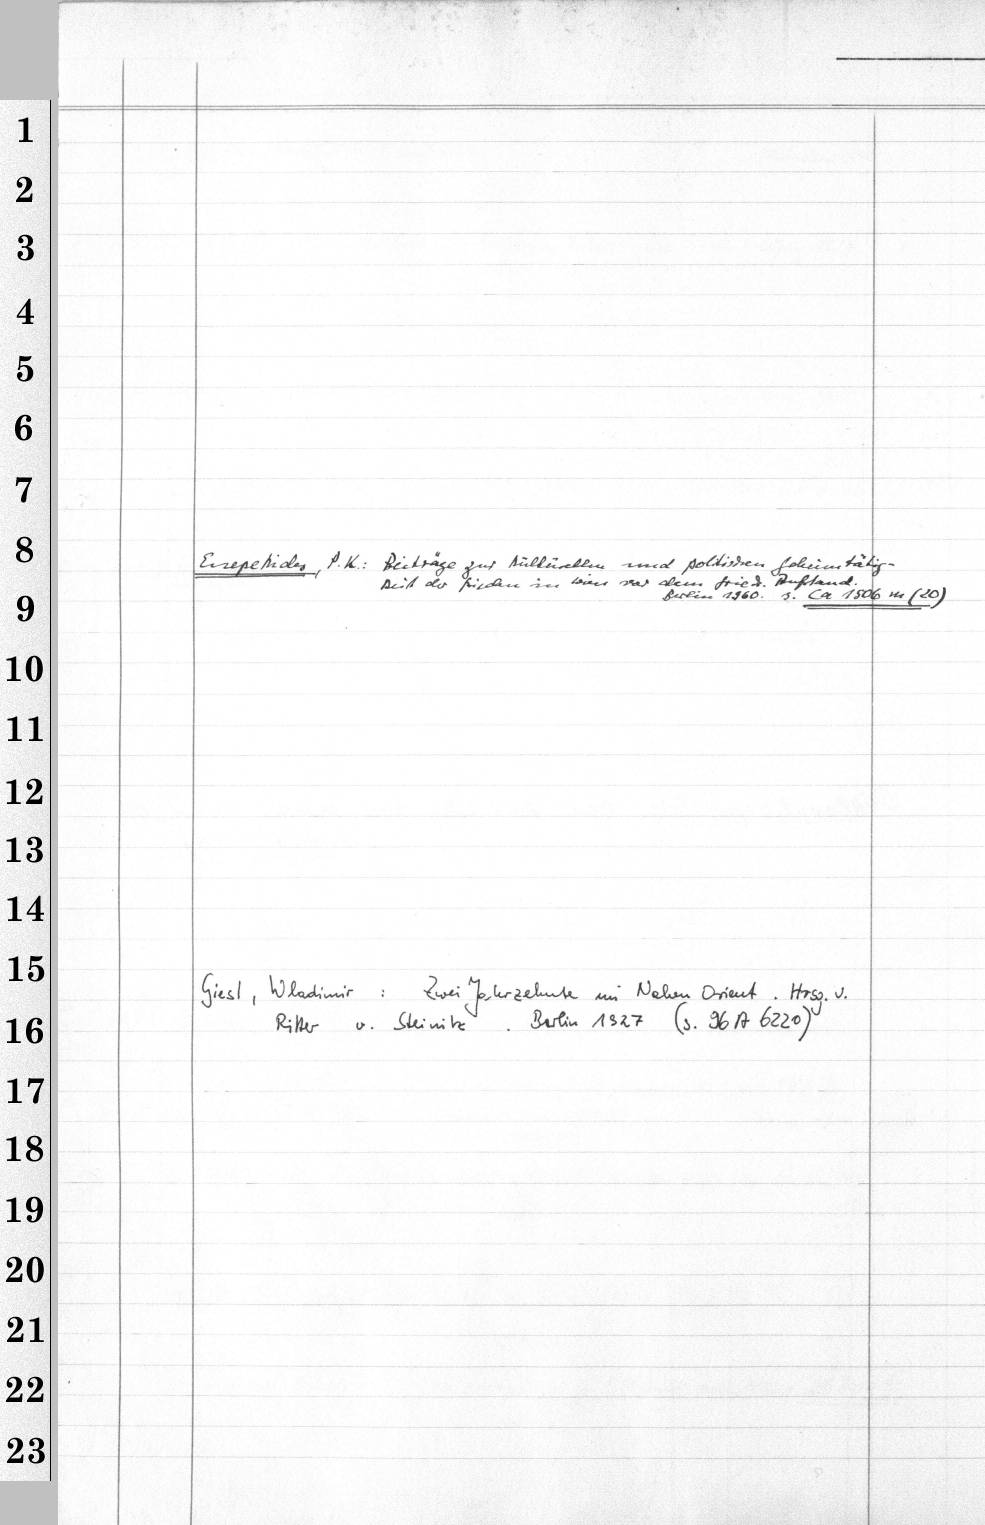 1
2
3
4
5
6
7
8
Enepekides, P.K.: Beiträge zur kulturellen und politischen Geheimtätig-
keit der Griechen in Wien vor dem griech. Aufstand.
Berlin 1960. s. Ca 1506 m (20)
9
10
11
12
13
14
15
Giesl, Wladimir : Zwei Jahrzehnte im Nahen Orient . Hrsg. v.
Ritter v. Steinitz . Berlin 1927 (s. 96 A 6220)
16
17
18
19
20
21
22
23